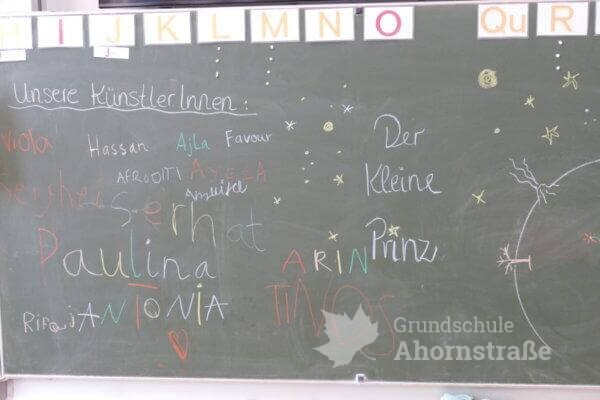 H I J K L M N O Qu R
Unsere KünstlerInnen:
Viola Hassan Ajla Favour
AFRODITI AYLLA
Serhat
Paulina
ARIN
ANTONIA
TINOS
Der
Kleine
Prinz
Grundschule
Ahornstraße